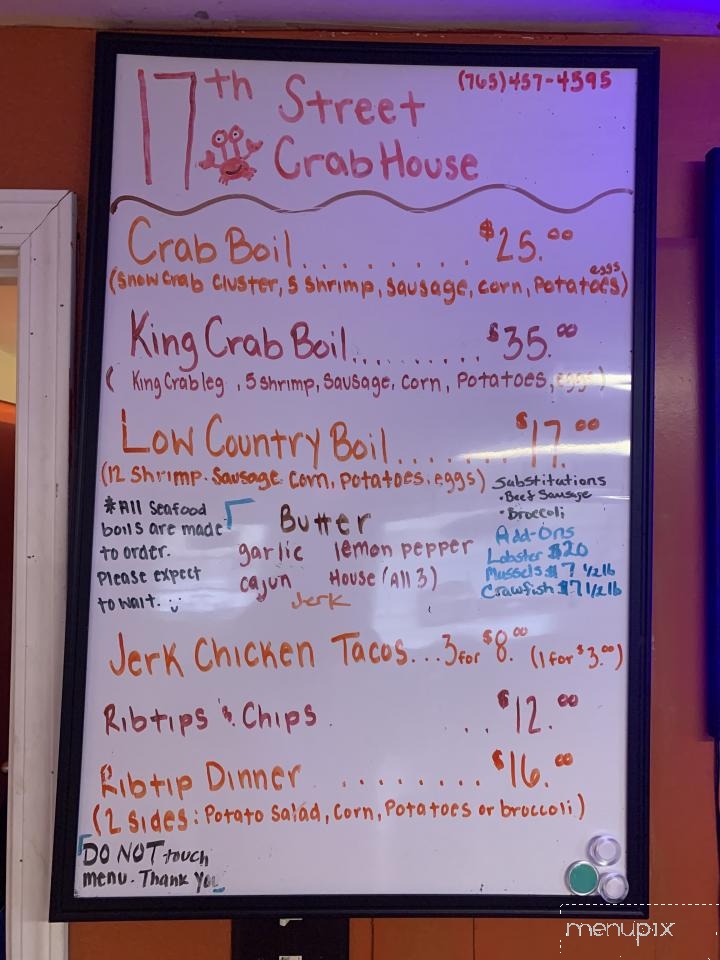 (765)457-4595
17th Street
Crab House
Crab Boil........ $25.00
eggs
(Snow Crab Cluster, 5 Shrimp, Sausage, corn, Potatoes)
King Crab Boil.......... $35.00
( King Crab leg , 5 shrimp, Sausage, Corn, Potatoes, eggs )
Low Country Boil....... $17.00
(12 Shrimp. Sausage. Corn, Potatoes, eggs)
Substitutions
• Beef Sausage
• Broccoli
*All Seafood
boils are made
to order.
Please expect
to wait.
Butter
garlic lemon pepper
cajun House (All 3)
Jerk
Add-Ons
Lobster $20
Mussels $7 1/2 lb
Crawfish $7 1/2 lb
Jerk Chicken Tacos...3 for $8.00 (1 for $3.00)
Ribtips & Chips .. $12.00
Ribtip Dinner ........ $16.00
(2 Sides: Potato Salad, Corn, Potatoes or broccoli)
DO NOT touch
menu. Thank You
menupix